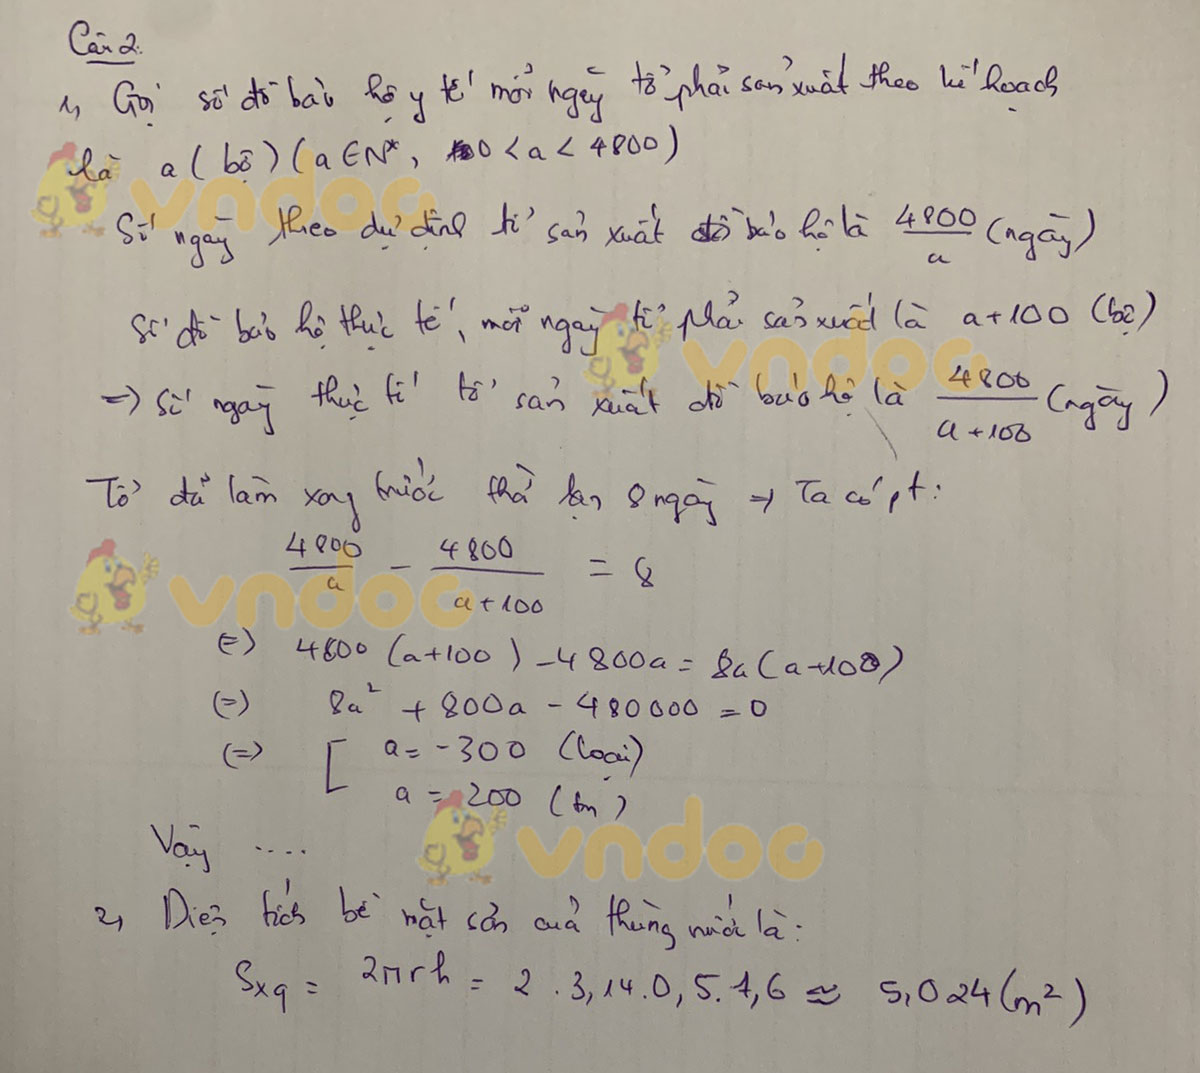 Câu 2:
1, Gọi số đồ bảo hộ y tế mỗi ngày tổ phải sản xuất theo kế hoạch
là a (bộ) (a ∈ N*, 0 < a < 4800)
Số ngày theo dự định tổ sản xuất đồ bảo hộ là 4800/a (ngày)
Số đồ bảo hộ thực tế, mỗi ngày tổ phải sản xuất là a+100 (bộ)
=> Số ngày thực tế tổ sản xuất đồ bảo hộ là 4800/(a+100) (ngày)
Tổ đã làm xong trước thời hạn 8 ngày => Ta có pt:
4800/a - 4800/(a+100) = 8
(=) 4800 (a+100) - 4800a = 8a (a+100)
(=) 8a² + 800a - 480000 = 0
(=> [ a = -300 (loại)
a = 200 (tm)
Vậy ....
2, Diện tích bề mặt sơn của thùng nước là:
Sxq = 2πrh = 2 . 3,14 . 0,5 . 1,6 ≈ 5,024 (m²)
vndoc
vndoc
vndoc
vndoc